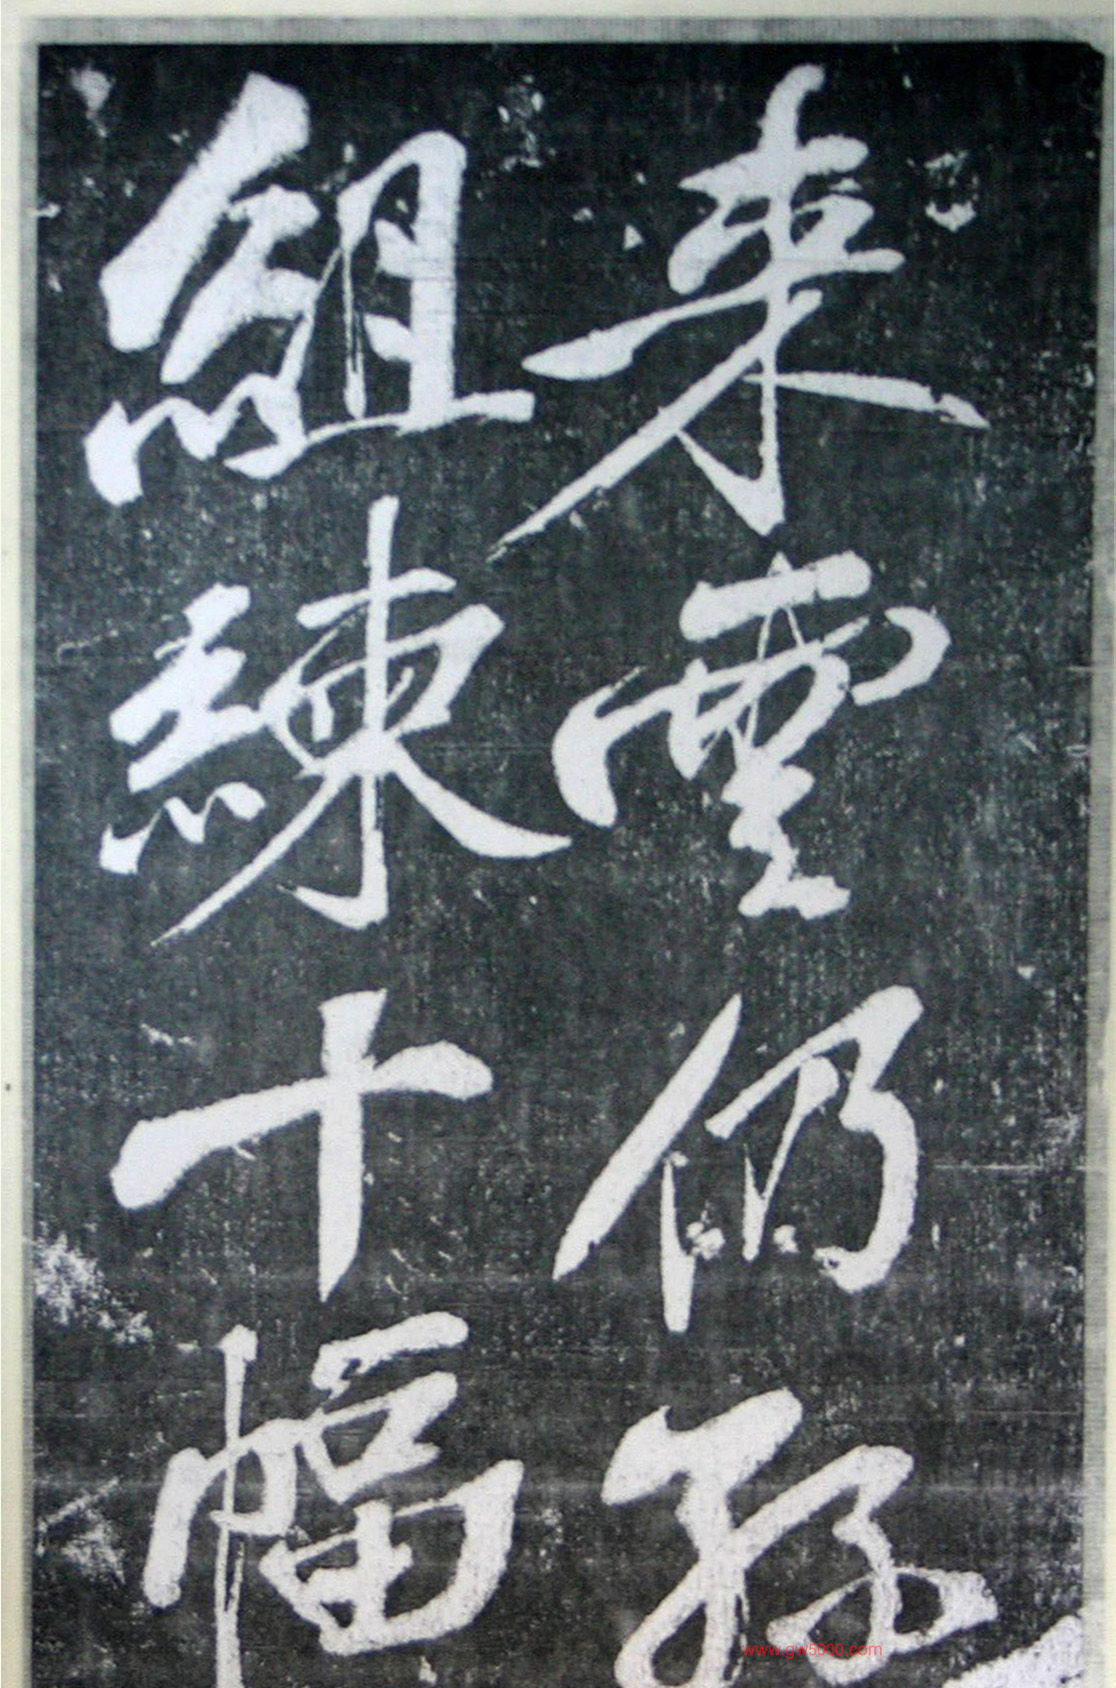 來雲仍孫
組練十幅
www.gw5000.com